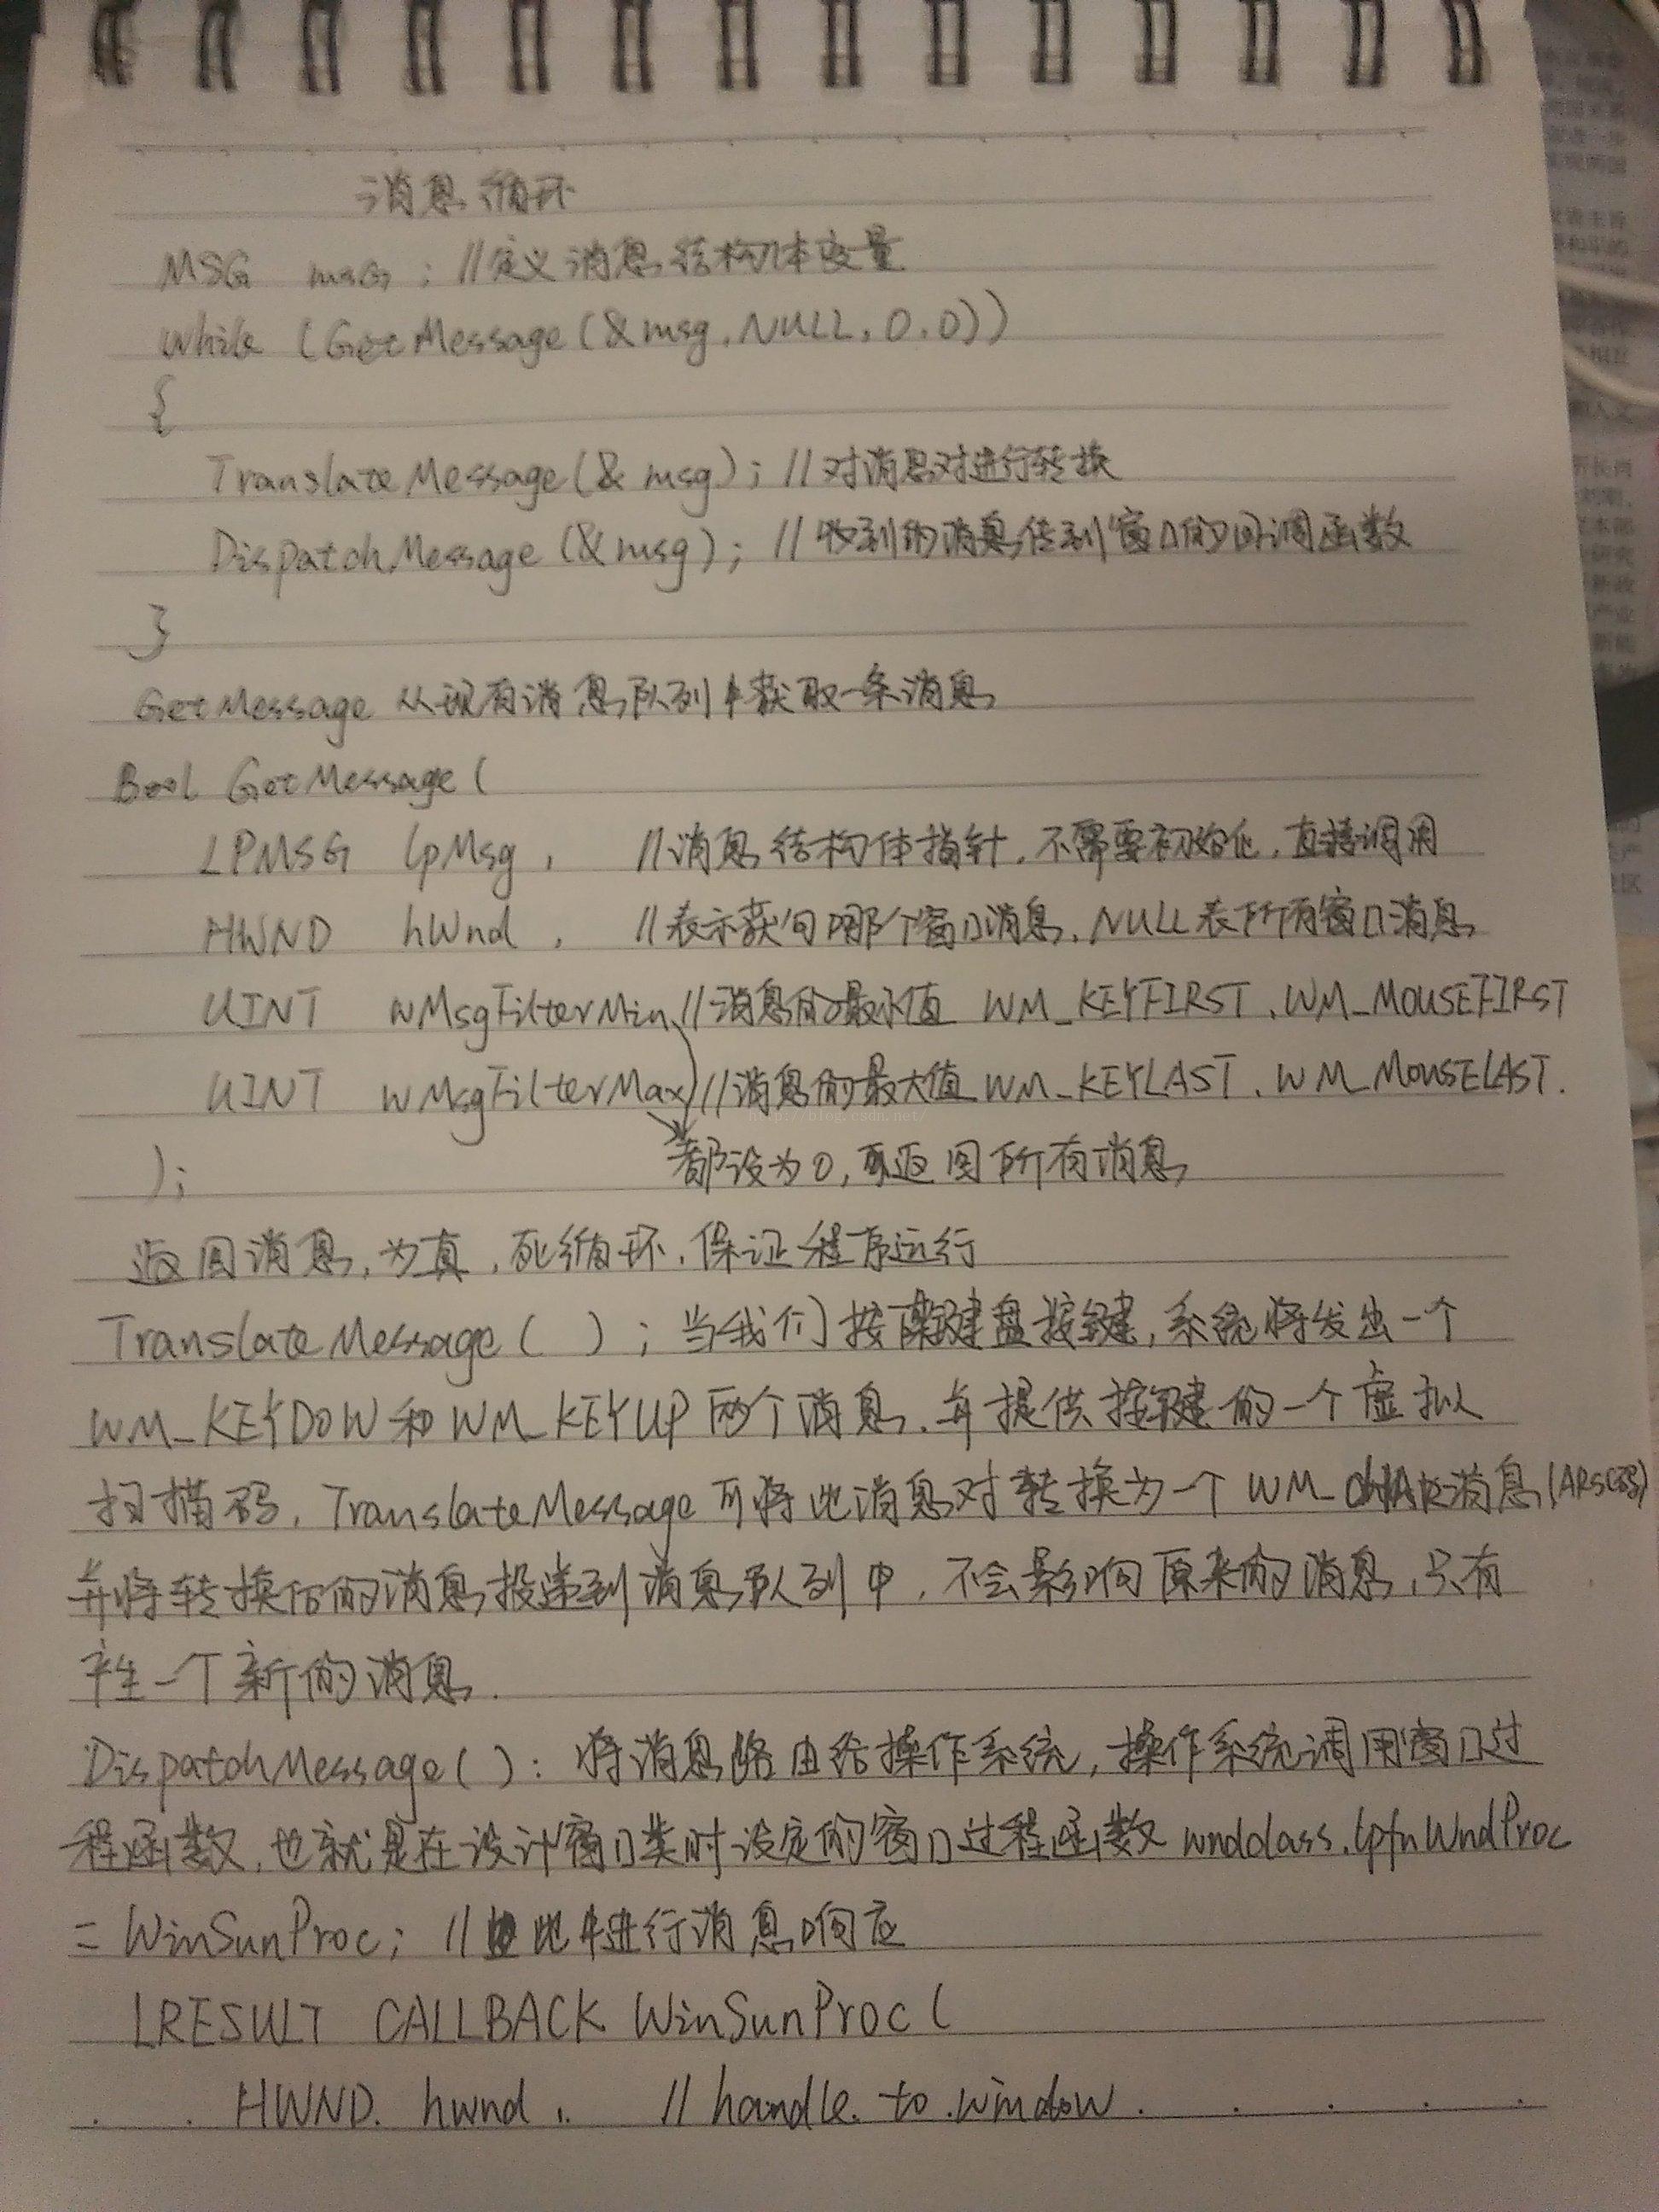 消息循环
MSG msG; //定义消息结构体变量
while (GetMessage(&msg,NULL,0,0))
{
TranslateMessage(& msg); //对消息对进行转换
DispatchMessage(&msg); //收到的消息传到窗口的回调函数
}
GetMessage 从现有消息队列中获取一条消息
Bool GetMessage(
LPMSG lpMsg, //消息结构体指针,不需要初始化,直接调用
HWND hWnd, //表示获句哪个窗口消息,NULL表所有窗口消息
UINT wMsgFilterMin //消息的最小值 WM_KEYFIRST、WM_MOUSEFIRST
UINT wMsgFilterMax //消息的最大值 WM_KEYLAST、WM_MOUSELAST.
http://blog.csdn.net/
); 都设为0,可返回所有消息
返回消息,为真,死循环,保证程序运行
TranslateMessage( ); 当我们按键盘按键,系统将发出一个
WM_KEYDOW和WM_KEYUP两个消息,并提供按键的一个虚拟
扫描码,TranslateMessage可将此消息对转换为一个WM_CHAR消息(ARSC码)
并将转换后的消息投递到消息队列中,不会影响原来的消息,只有
产生一个新的消息.
DispatchMessage( ): 将消息路由给操作系统,操作系统调用窗口过
程函数,也就是在设计窗口类时设定的窗口过程函数 wndclass.lpfnWndProc
= WinSunProc; //此中进行消息响应
LRESULT CALLBACK WinSunProc(
HWND hwnd, //handle to window